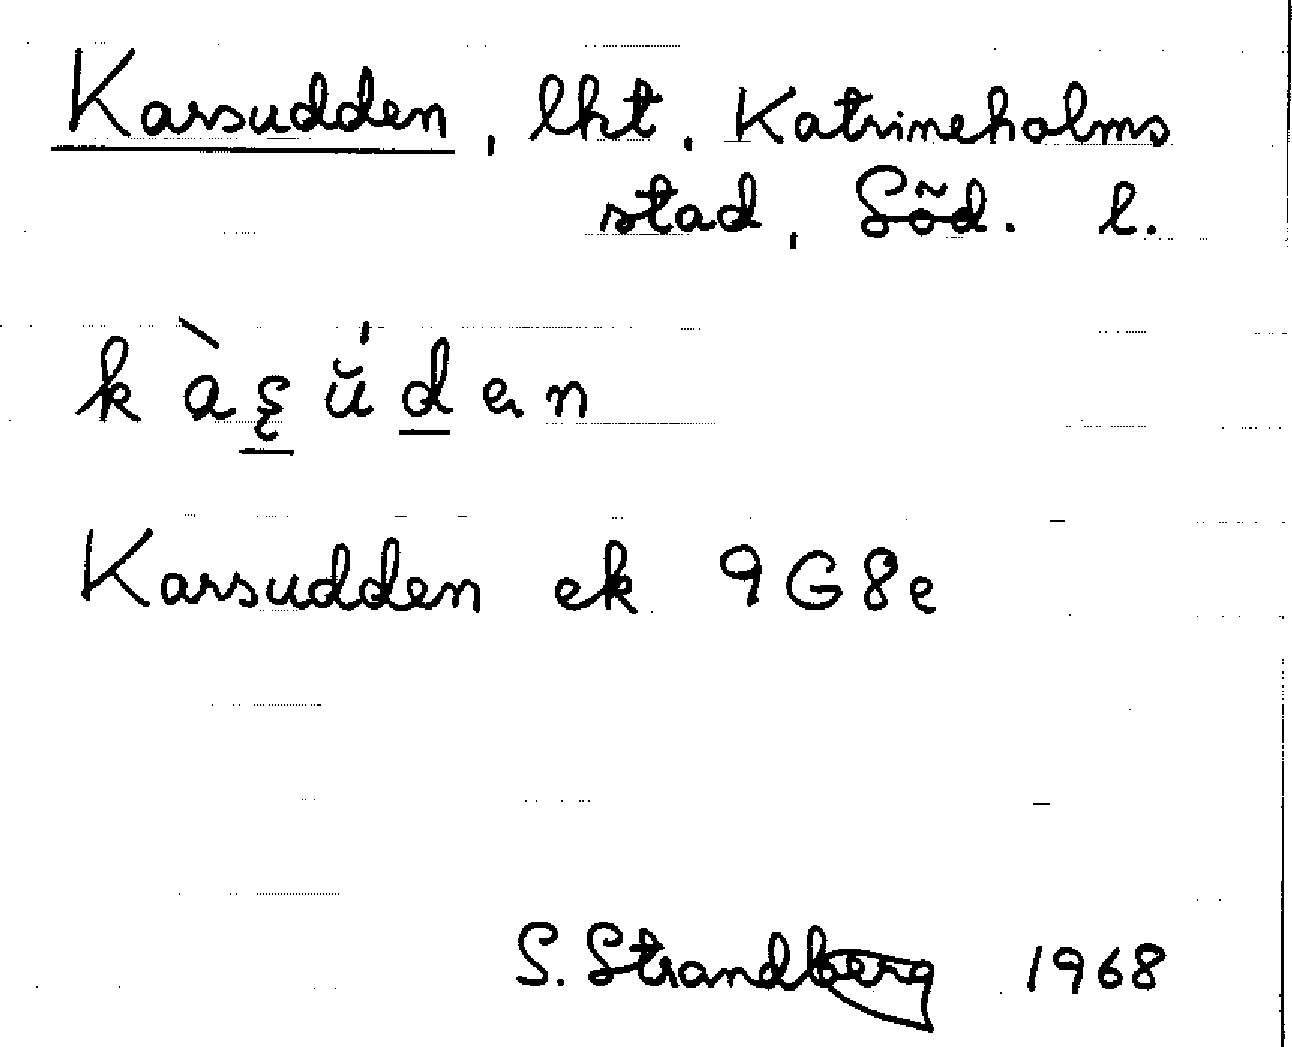 Karsudden, lht. Katrineholms
stad, Söd. l.
kàs̨ŭ́den
Karsudden ek 9G8e
S. Strandberg 1968